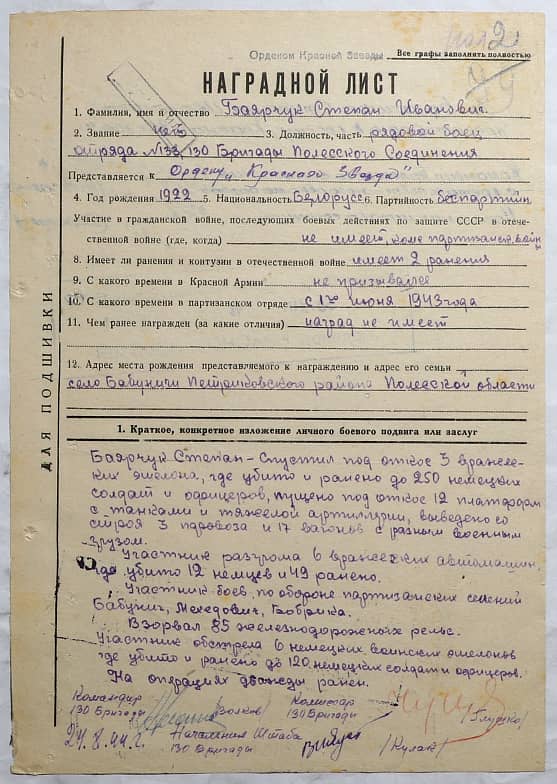 пол 2
Орденом Красной Звезды
Все графы заполнить полностью
НАГРАДНОЙ ЛИСТ
1. Фамилия, имя и отчество Боярчук Степан Иванович.
2. Звание нет 3. Должность, часть рядовой боец
отряда №133, 130 Бригады Полесского Соединения
Представляется к Ордену „Красная Звезда"
4. Год рождения 1922 5. Национальность Белорусс 6. Партийность беспартийн
Участие в гражданской войне, последующих боевых действиях по защите СССР в отече-
ственной войне (где, когда) не имеет, кроме партизанск. войны
8. Имеет ли ранения и контузии в отечественной войне имеет 2 ранения
9. С какого времени в Красной Армии не призывался
10. С какого времени в партизанском отряде с 1го июня 1943 года
11. Чем ранее награжден (за какие отличия) наград не имеет
12. Адрес места рождения представляемого к награждению и адрес его семьи
село Бабуничи Петриковского района Полесской области
ДЛЯ ПОДШИВКИ
1. Краткое, конкретное изложение личного боевого подвига или заслуг
Боярчук Степан – Спустил под откос 3 вражес-
ких эшелона, где убито и ранено до 250 немецких
солдат и офицеров, пущено под откос 12 платформ
с танками и тяжелой артиллерии, выведено со
строя 3 паровоза и 17 вагонов с разным военным
грузом.
Участник разгрома 6 вражеских автомашин,
где убито 12 немцев и 49 ранено.
Участник боев, по обороне партизанских селений
Бабунич, Мехедович, Бобрика.
Взорвал 85 железнодорожных рельс.
Участник обстрела 6 немецких воинских эшелонов
где убито и ранено до 120 немецких солдат и офицеров.
На операциях дважды ранен.
Командир
130 Бригады Волков
Комиссар
130 Бригады /Глушко/
24.8.44 г.
Начальник Штаба
130 Бригады /Кулак/